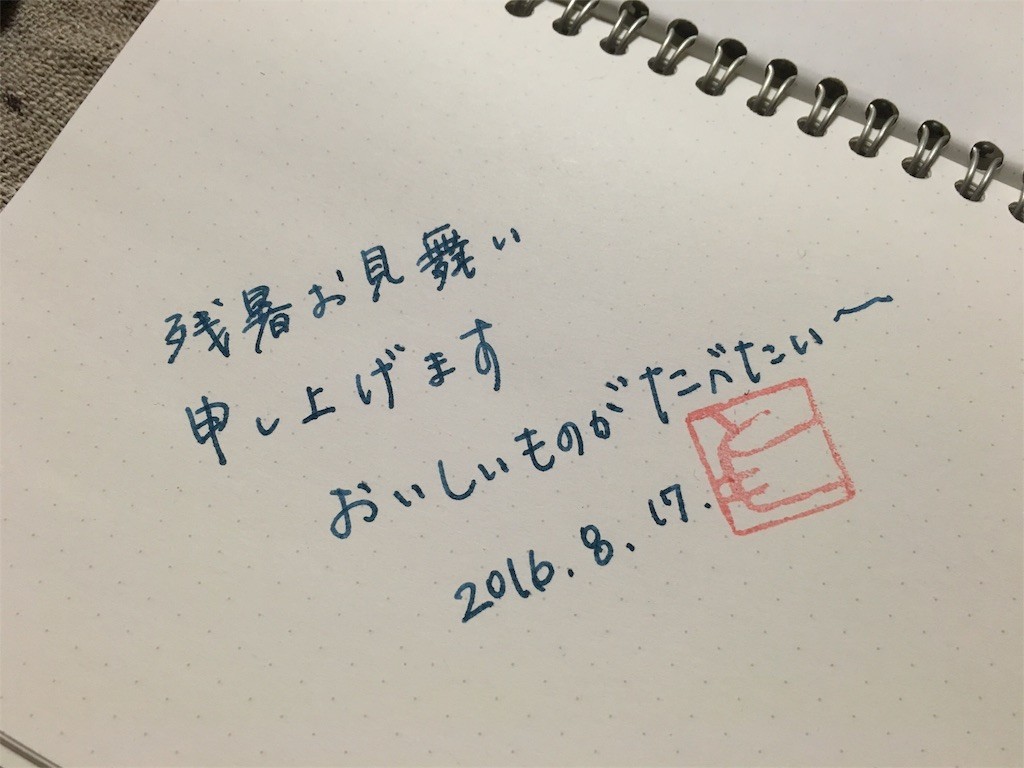 残暑お見舞い
申し上げます
おいしいものがたべたい〜
2016.8.17.